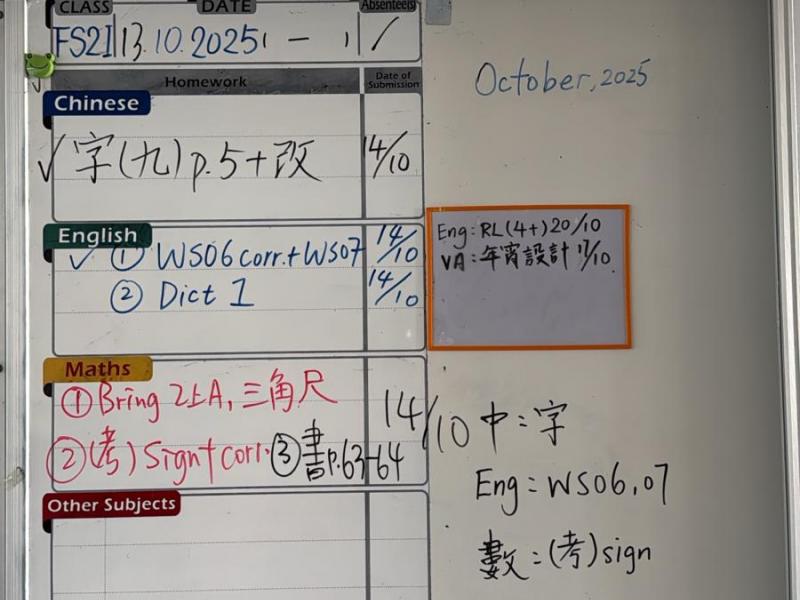 CLASS DATE Absentee(s)
FS2I 13.10.2025 - /
Homework Date of Submission
Chinese
✓ 字(九)p.5+改 14/10
English
✓ ① WS06 corr.+WS07 14/10
② Dict 1 14/10
Maths
① Bring 2上A, 三角尺
② (考) Sign+corr. ③ 書p.63-64
14/10
Other Subjects
October, 2025
Eng: RL(4+) 20/10
VA: 年宵設計 17/10
中:字
Eng: WS06,07
數:(考)sign